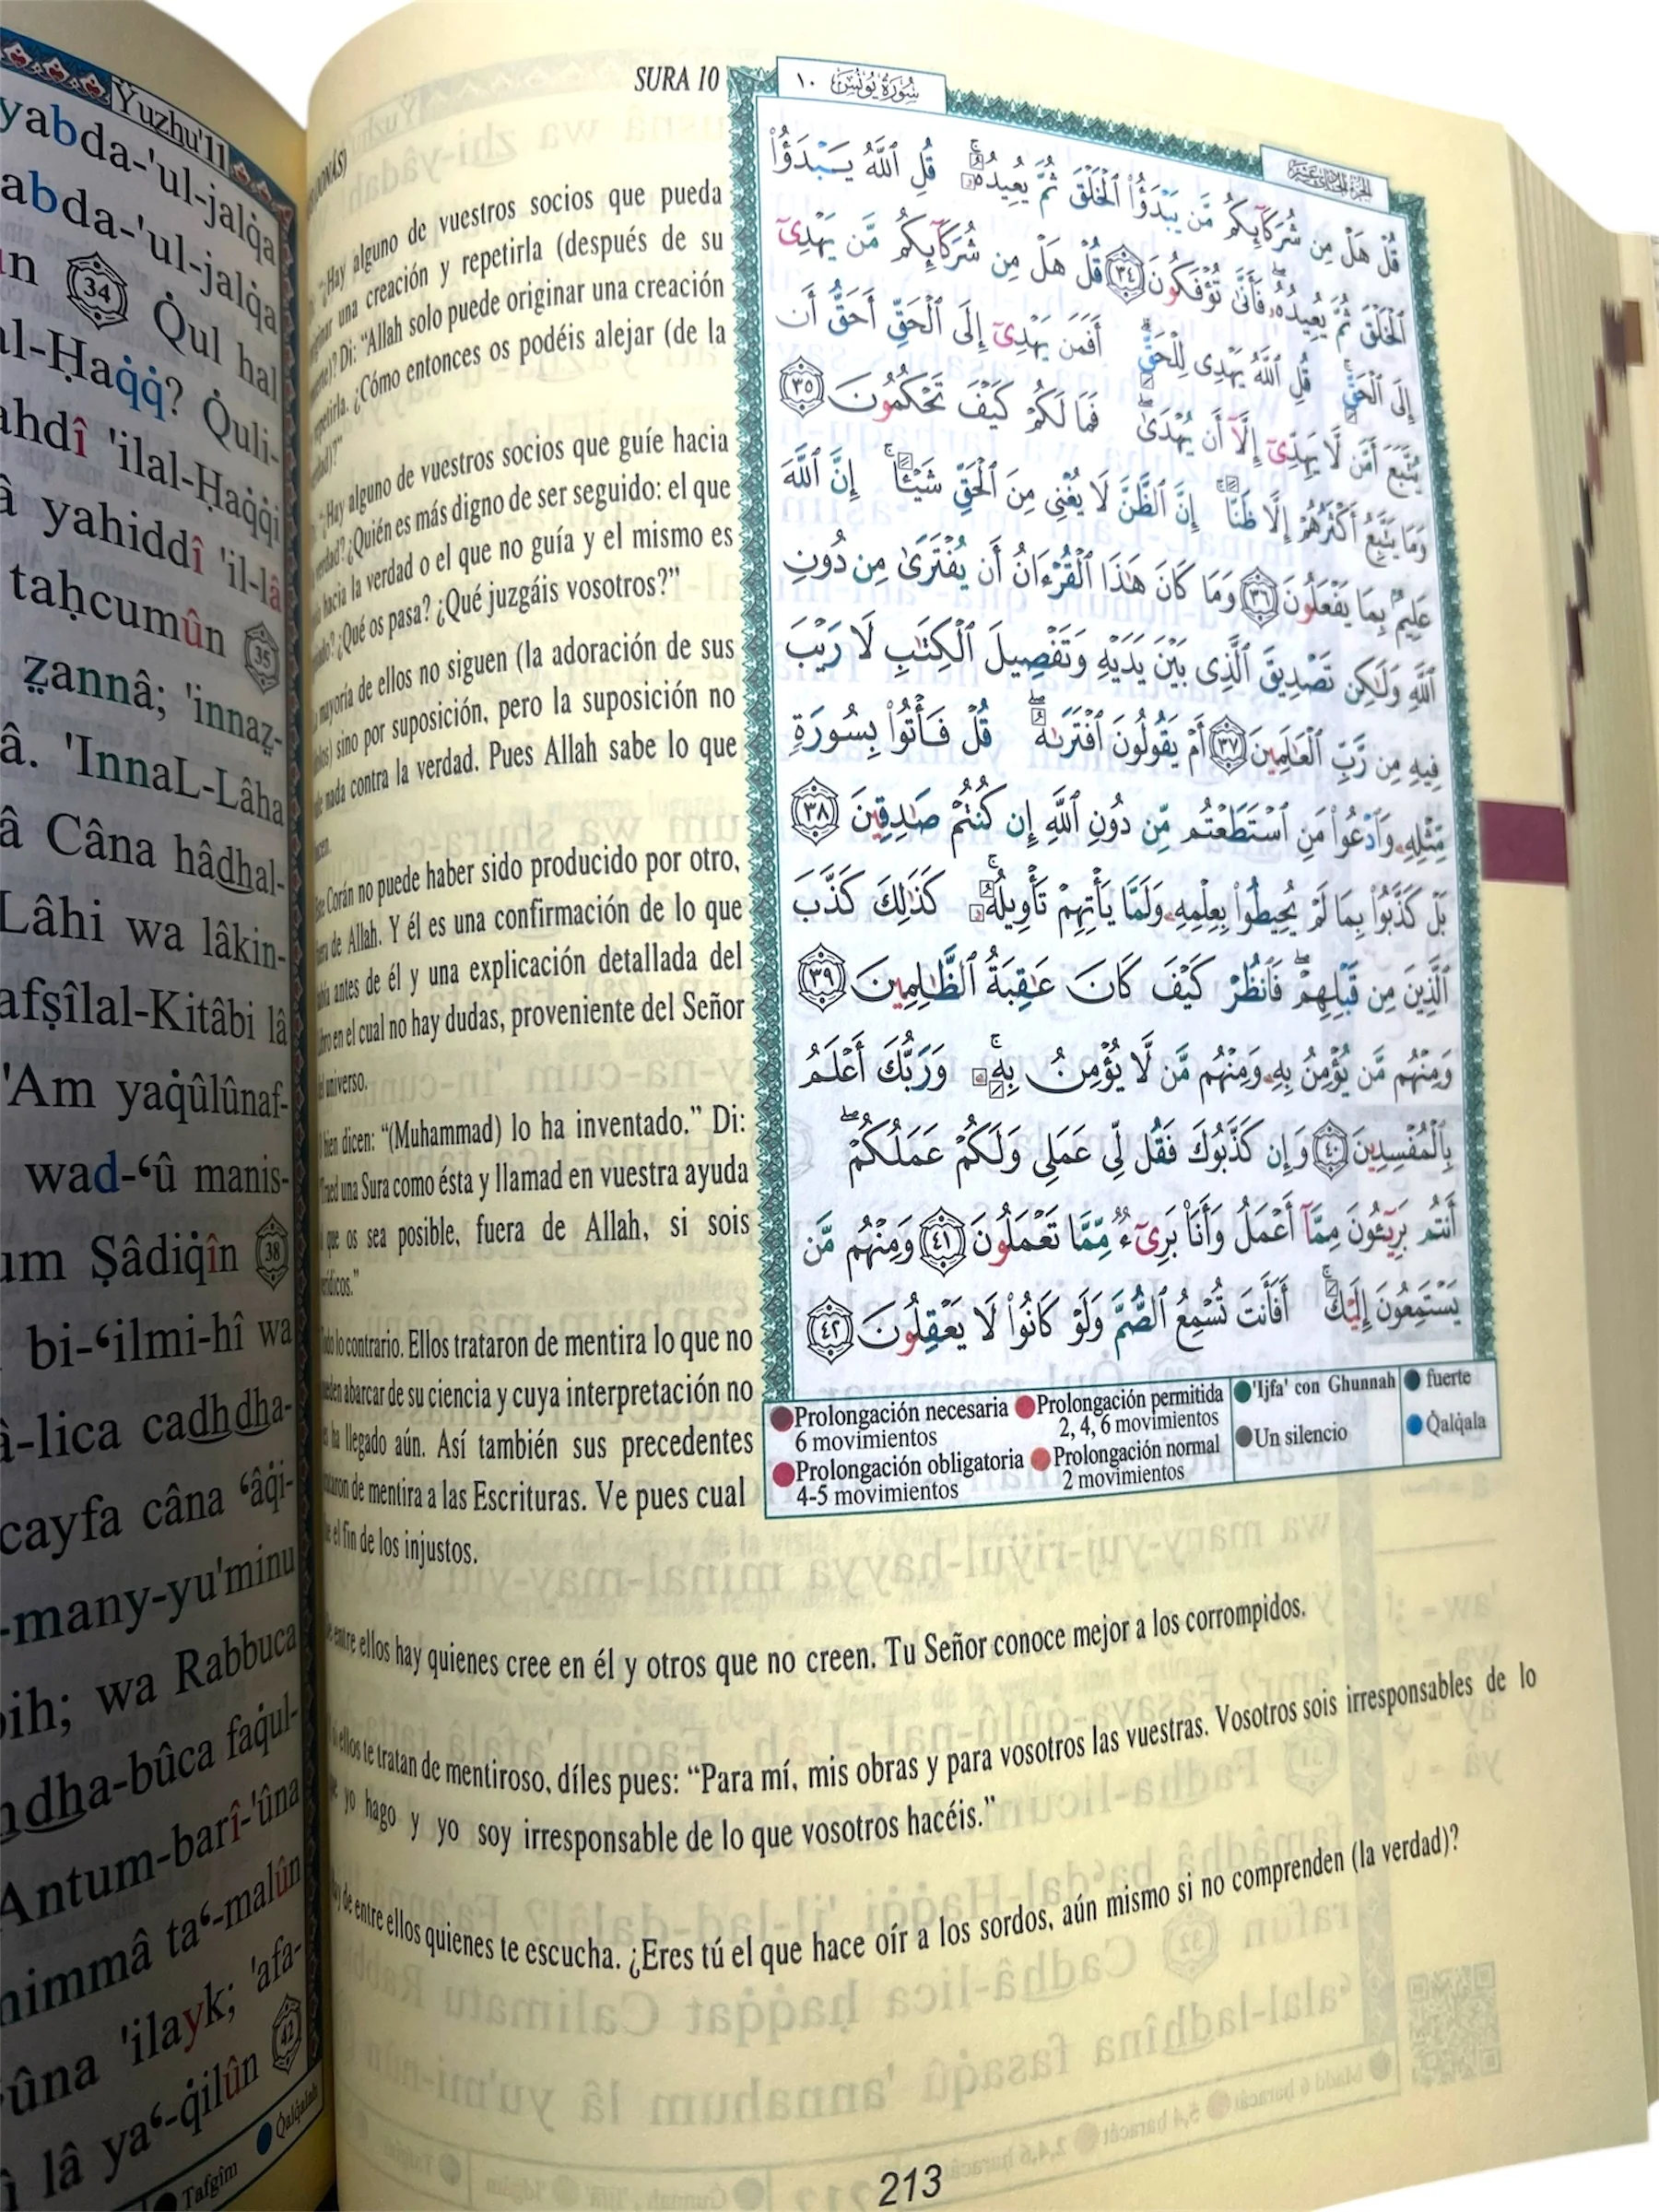 Yuzhu'11
yabda-'ul-jalq̇a
abda-'ul-jalq̇a
34 Q̇ul hal
al-Ḥaq̇q̇? Q̇uli-
ahdî 'ilal-Ḥaq̇q̇i
â yahiddî 'il-lâ
taḥcumûn 35
ẓannâ; 'innaẓ-
â. 'InnaL-Lâha
â Câna hâdhal-
Lâhi wa lâkin-
afṣîlal-Kitâbi lâ
'Am yaq̇ûlûnaf-
wad-‘û manis-
um Ṣâdiq̇în 38
bi-‘ilmi-hî wa
â-lica cadhdha-
cayfa câna ‘âq̇i-
-many-yu'minu
bih; wa Rabbuca
dha-bûca faq̇ul-
Antum-barî-'ûna
mimmâ ta‘-malûn
ûna 'ilayk; 'afa-
lâ ya‘-q̇ilûn 42
Tafgîm Q̇alq̇alah
SURA 10
¿Hay alguno de vuestros socios que pueda
una creación y repetirla (después de su
Di: “Allah solo puede originar una creación
repetirla. ¿Cómo entonces os podéis alejar (de la
“¿Hay alguno de vuestros socios que guíe hacia
verdad? ¿Quién es más digno de ser seguido: el que
hacia la verdad o el que no guía y el mismo es
¿Qué os pasa? ¿Qué juzgáis vosotros?”
mayoría de ellos no siguen (la adoración de sus
sino por suposición, pero la suposición no
nada contra la verdad. Pues Allah sabe lo que
Corán no puede haber sido producido por otro,
de Allah. Y él es una confirmación de lo que
antes de él y una explicación detallada del
en el cual no hay dudas, proveniente del Señor
universo.
bien dicen: “(Muhammad) lo ha inventado.” Di:
una Sura como ésta y llamad en vuestra ayuda
que os sea posible, fuera de Allah, si sois
lo contrario. Ellos trataron de mentira lo que no
abarcar de su ciencia y cuya interpretación no
ha llegado aún. Así también sus precedentes
de mentira a las Escrituras. Ve pues cual
el fin de los injustos.
entre ellos hay quienes cree en él y otros que no creen. Tu Señor conoce mejor a los corrompidos.
ellos te tratan de mentiroso, díles pues: “Para mí, mis obras y para vosotros las vuestras. Vosotros sois irresponsables de lo
yo hago y yo soy irresponsable de lo que vosotros hacéis.”
de entre ellos quienes te escucha. ¿Eres tú el que hace oír a los sordos, aún mismo si no comprenden (la verdad)?
سُورَةُ يُونُسَ ١٠
الجزء الحادي عشر
قُلْ هَلْ مِن شُرَكَآئِكُم مَّن يَبْدَؤُا۟ ٱلْخَلْقَ ثُمَّ يُعِيدُهُۥ ۚ قُلِ ٱللَّهُ يَبْدَؤُا۟
ٱلْخَلْقَ ثُمَّ يُعِيدُهُۥ ۖ فَأَنَّىٰ تُؤْفَكُونَ ٣٤ قُلْ هَلْ مِن شُرَكَآئِكُم مَّن يَهْدِىٓ
إِلَى ٱلْحَقِّ ۚ قُلِ ٱللَّهُ يَهْدِى لِلْحَقِّ ۗ أَفَمَن يَهْدِىٓ إِلَى ٱلْحَقِّ أَحَقُّ أَن
يُتَّبَعَ أَمَّن لَّا يَهِدِّىٓ إِلَّآ أَن يُهْدَىٰ ۖ فَمَا لَكُمْ كَيْفَ تَحْكُمُونَ ٣٥
وَمَا يَتَّبِعُ أَكْثَرُهُمْ إِلَّا ظَنًّا ۚ إِنَّ ٱلظَّنَّ لَا يُغْنِى مِنَ ٱلْحَقِّ شَيْـًٔا ۚ إِنَّ ٱللَّهَ
عَلِيمٌۢ بِمَا يَفْعَلُونَ ٣٦ وَمَا كَانَ هَٰذَا ٱلْقُرْءَانُ أَن يُفْتَرَىٰ مِن دُونِ
ٱللَّهِ وَلَٰكِن تَصْدِيقَ ٱلَّذِى بَيْنَ يَدَيْهِ وَتَفْصِيلَ ٱلْكِتَٰبِ لَا رَيْبَ
فِيهِ مِن رَّبِّ ٱلْعَٰلَمِينَ ٣٧ أَمْ يَقُولُونَ ٱفْتَرَىٰهُ ۖ قُلْ فَأْتُوا۟ بِسُورَةٍ
مِّثْلِهِۦ وَٱدْعُوا۟ مَنِ ٱسْتَطَعْتُم مِّن دُونِ ٱللَّهِ إِن كُنتُمْ صَٰدِقِينَ ٣٨
بَلْ كَذَّبُوا۟ بِمَا لَمْ يُحِيطُوا۟ بِعِلْمِهِۦ وَلَمَّا يَأْتِهِمْ تَأْوِيلُهُۥ ۚ كَذَٰلِكَ كَذَّبَ
ٱلَّذِينَ مِن قَبْلِهِمْ ۖ فَٱنظُرْ كَيْفَ كَانَ عَٰقِبَةُ ٱلظَّٰلِمِينَ ٣٩
وَمِنْهُم مَّن يُؤْمِنُ بِهِۦ وَمِنْهُم مَّن لَّا يُؤْمِنُ بِهِۦ ۚ وَرَبُّكَ أَعْلَمُ
بِٱلْمُفْسِدِينَ ٤٠ وَإِن كَذَّبُوكَ فَقُل لِّى عَمَلِى وَلَكُمْ عَمَلُكُمْ ۖ
أَنتُم بَرِيٓـُٔونَ مِمَّآ أَعْمَلُ وَأَنَا۠ بَرِىٓءٌ مِّمَّا تَعْمَلُونَ ٤١ وَمِنْهُم مَّن
يَسْتَمِعُونَ إِلَيْكَ ۚ أَفَأَنتَ تُسْمِعُ ٱلصُّمَّ وَلَوْ كَانُوا۟ لَا يَعْقِلُونَ ٤٢
Prolongación necesaria
6 movimientos
Prolongación permitida
2, 4, 6 movimientos
Prolongación obligatoria
4-5 movimientos
Prolongación normal
2 movimientos
'Ijfa' con Ghunnah
Un silencio
fuerte
Q̇alq̇ala
213